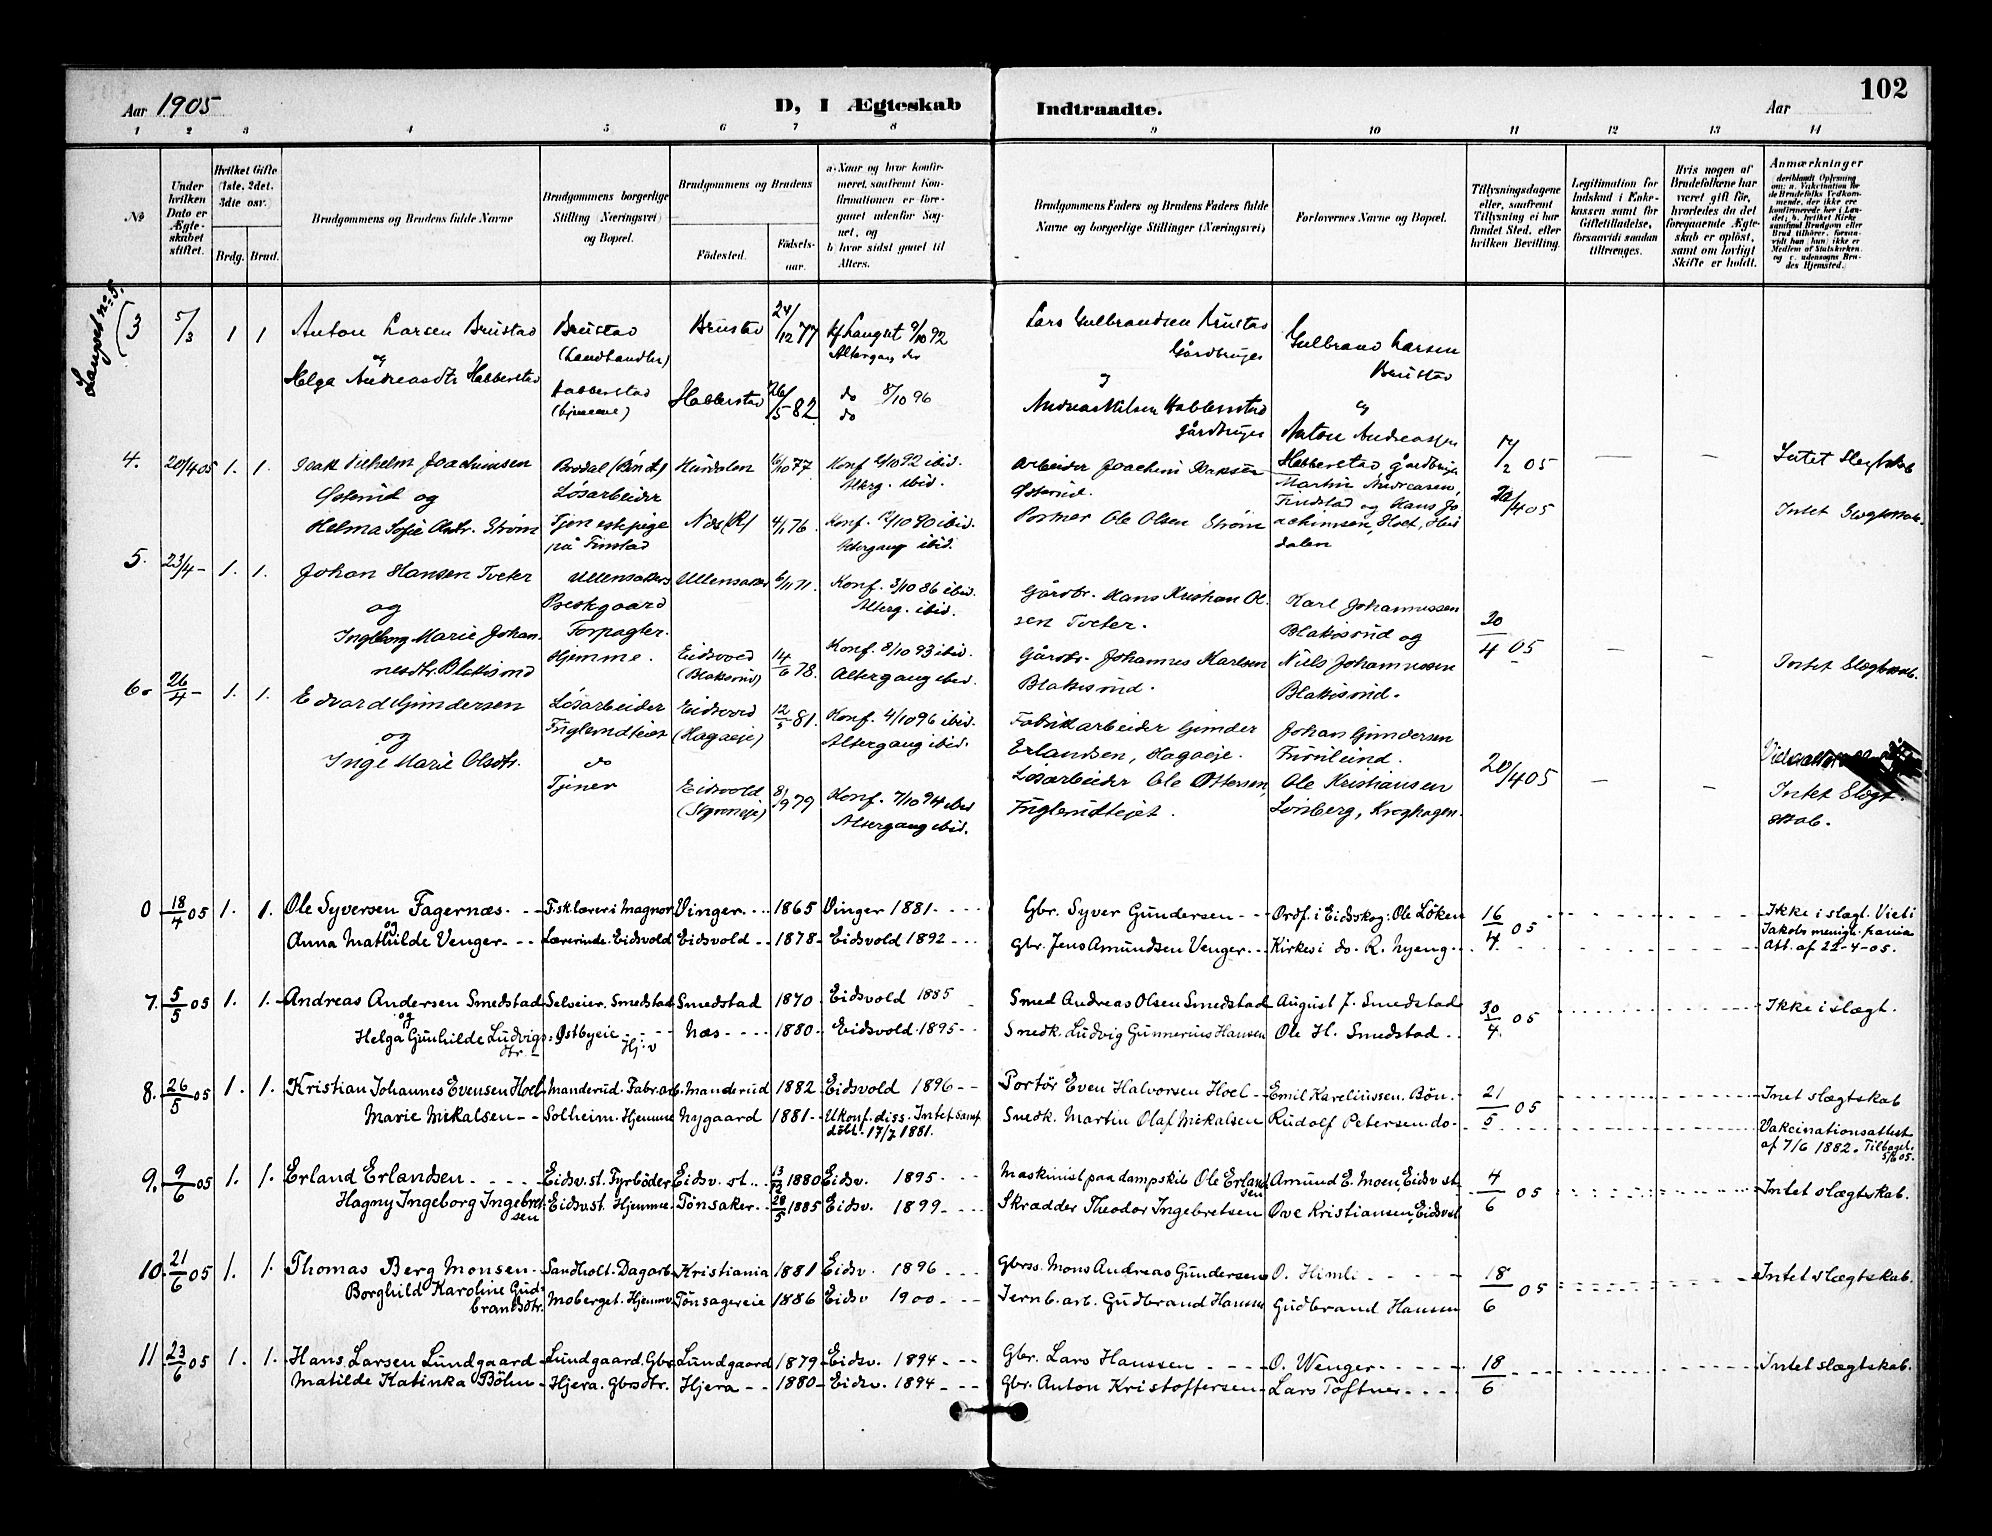 102
Aar 1905
D, I Ægteskab Indtraadte.
Aar
1 2 3 4 5 6 7 8 9 10 11 12 13 14
No
Under hvilken Dato er Ægteskabet stiftet.
Hvilket Gifte (1ste. 2det. 3die osv.)
Brdg. Brud.
Brudgommens og Brudens fulde Navne
Brudgommens borgerlige Stilling (Næringsvei) og Bopæl.
Brudgommens og Brudens
Födested.
Födselsaar.
a. Naar og hvor konfirmeret, saafremt Konfirmationen er foregaaet udenfor Sognet, og
b. hvor sidst gaaet til Alters.
Brudgommens Faders og Brudens Faders fulde Navne og borgerlige Stillinger (Næringsvei)
Forlovernes Navne og Bopæl.
Tillysningsdagene eller, saafremt Tillysning ei har fundet Sted, efter hvilken Bevilling.
Legitimation for Indskud i Enkekassen samt for Giftetilladelse, forsaavidt saadan tiltrænges.
Hvis nogen af Brudefolkene har været gift för, hvorledes da det foregaaende Ægteskab er oplöst, samt om lovligt Skifte er holdt.
Anmærkninger
deriblandt Oplysning om: a. Vakcination for de Brudefolks Vedkommende, der ikke ere konfirmerede her i Landet; b. hvilket Kirkesamfund Brudgom eller Brud tilhörer, forsaavidt han (hun) ikke er Medlem af Statskirken, og c. udensogns Brudes Hjemsted.
Langset no 5.
(3 5/3 1 1 Anton Larsen Brustad Brustad (Landhandler) Brustad 24/12 77 Kf Langset 9/10 92 Altergang do Lars Gulbrandsen Brustad Gårdbruger Gulbrand Larsen Brustad
og
Helga Andreasdtr Habberstad Habberstad (hjemme) Habberstad 26/5 82 do 8/10 96 do og Andreas Nilsen Habberstad Gårdbruger og Anton Andreassen Habberstad, gårdbruger 05 — — Intet Slegtskab
4. 20/4 05 1. 1. Isak Vilhelm Joachimsen Østerud og Løsarbeider Hurdalen 77 Konf. 2/10 92 ibid. Alterg. ibid. Arbeider Joachim Isaksen Østerud. Martin Andreasen, Finstad og Hans Joachimsen, Hoel, Hurdalen 20/4 05 Intet Slegtskab.
Helma Sofie Olsdtr. Strøm Tjenestepige på Finstad Næs (R) 4/1 76. Konf. 12/10 90 ibid. Altergang ibid. Portner Ole Olsen Strøm
5. 23/4 - 1. 1. Johan Hansen Tveter Ullensakers Præstgaard Forpagter. Ullensaker 6/11 71. Konf. 3/10 86 ibid. Alterg. ibid. Gårdbr. Hans Kristian Olsen Tveter. Karl Johannessen Blakisrud og 20/4 05 — — Intet Slegtskab.
og
Ingeborg Marie Johannesdtr. Blakisrud Hjemme. Eidsvold (Blakisrud) 14/6 78. Konf. 8/10 93 ibid. Altergang ibid. Gårdbr. Johannes Karlsen Blakisrud. Niels Johannessen Blakisrud.
6. 26/4 - 1. 1. Edvard Gundersen Løsarbeider Eidsvold (Hagaeje) 12/5 81. Konf. 4/10 96 ibid. Altergang ibid. Fabrikarbeider Gunder Erlandsen, Hagaeje. Johan Gundersen Furulund. 20/4 05 — — Intet Slegtskab.
og
Inge Marie Olsdtr. do Tjener Eidsvold 8/9 79 Konf. 7/10 94 ibid Altergang ibid. Løsarbeider Ole Ottersen, Ole Kristiansen Lönberg, Kroghagen.
0 18/4 05 1. 1. Ole Syversen Fagernæs. F.sk.lærer i Magnor Vinger. 1865 Vinger 1881. Gbr. Syver Gundersen Ordf. i Eidskog: Ole Löken 16/4 05 Ikke i slægt. Viet i Jakobs menigh. Att. af 22-4-05.
og
Anna Mathilde Venger. Lærerinde. Eidsvold Eidsvold 1878 Eidsvold 1892 Gbr. Jens Amundsen Venger Kirkes. i do. R. Nyeng
7. 5/5 05 1. 1. Andreas Andersen Smedstad Selveier. Smedstad Smedstad 1870 Eidsvold 1885 Smed Andreas Olsen Smedstad August J. Smedstad 30/4 05 Ikke i slægt.
og
Helga Gunhilde Ludvigsdtr. Østbyeie. Hj. Næs 1880 Eidsvold 1895 Snedk. Ludvig Gunnerius Hansen Ole H. Smedstad
8. 26/5 05 1. 1. Kristian Johannes Evensen Hoel Manderud. Fabr.arb. Manderud 1882 Eidsvold 1896 Portör Even Halvorsen Hoel Emil Kareliussen. Bön. 21/5 05 Intet slægtskab
Marie Mikalsen Solheim. Hjemme Nygaard 1881 Ukonf. diss. Intet samf döbt. 17/7 1881. Snedk. Martin Olaf Mikalsen Rudolf Petersen do Vakcinationsattest af 7/6 1882. Tilbaget. 5/6 05.
9. 9/6 05 1. 1. Erland Erlandsen Eidsv. st. Fyrböder Eidsv. st. 13/12 1880 Eidsv. 1895 Maskinist paa dampskib Ole Erlandsen Amund E. Moen, Eidsv st 4/6 05 Intet slægtskab.
Hagny Ingeborg Ingebretsen Eidsv. st. Hjemme. Tönsaker. 28/5 1885 Eidsv. 1899 Skrædder Theodor Ingebretsen Ove Kristiansen, Eidsv st
10. 21/6 05 1. 1. Thomas Berg Monsen. Sandholt. Dagarb. Kristiania 1881 Eidsv. 1896 Gbrss. Mons Andreas Gundersen O. Himli 18/6 05 Intet slægtskab.
Borghild Karoline Gudbrandsdtr. Moberget. Hjemme Tönsagereie 1886 Eidsv 1900 Jernb. arb. Gudbrand Hansen Gudbrand Hansen
11 23/6 05 1. 1. Hans Larsen Lundgaard Lundgaard. Gbr Lundgaard 1879 Eidsv. 1894 Gbr. Lars Hanssen O. Wenger 18/6 Intet slægtskab.
Matilde Katinka Böhn Hjera. Gbrsdtr. Hjera 1880 Eidsv. 1894 Gbr. Anton Kristoffersen Lars Toftner